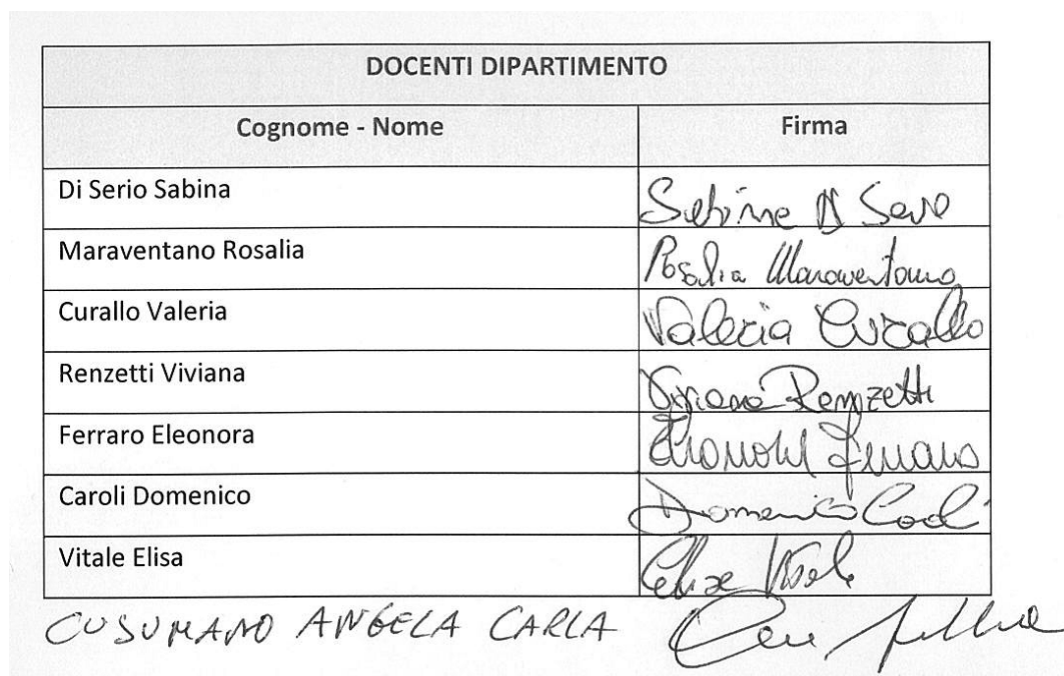 DOCENTI DIPARTIMENTO
Cognome - Nome Firma
Di Serio Sabina Sabina Di Serio
Maraventano Rosalia Rosalia Maraventano
Curallo Valeria Valeria Curallo
Renzetti Viviana Viviana Renzetti
Ferraro Eleonora Eleonora Ferraro
Caroli Domenico Domenico Caroli
Vitale Elisa Elisa Vitale
CUSUMANO ANGELA CARLA